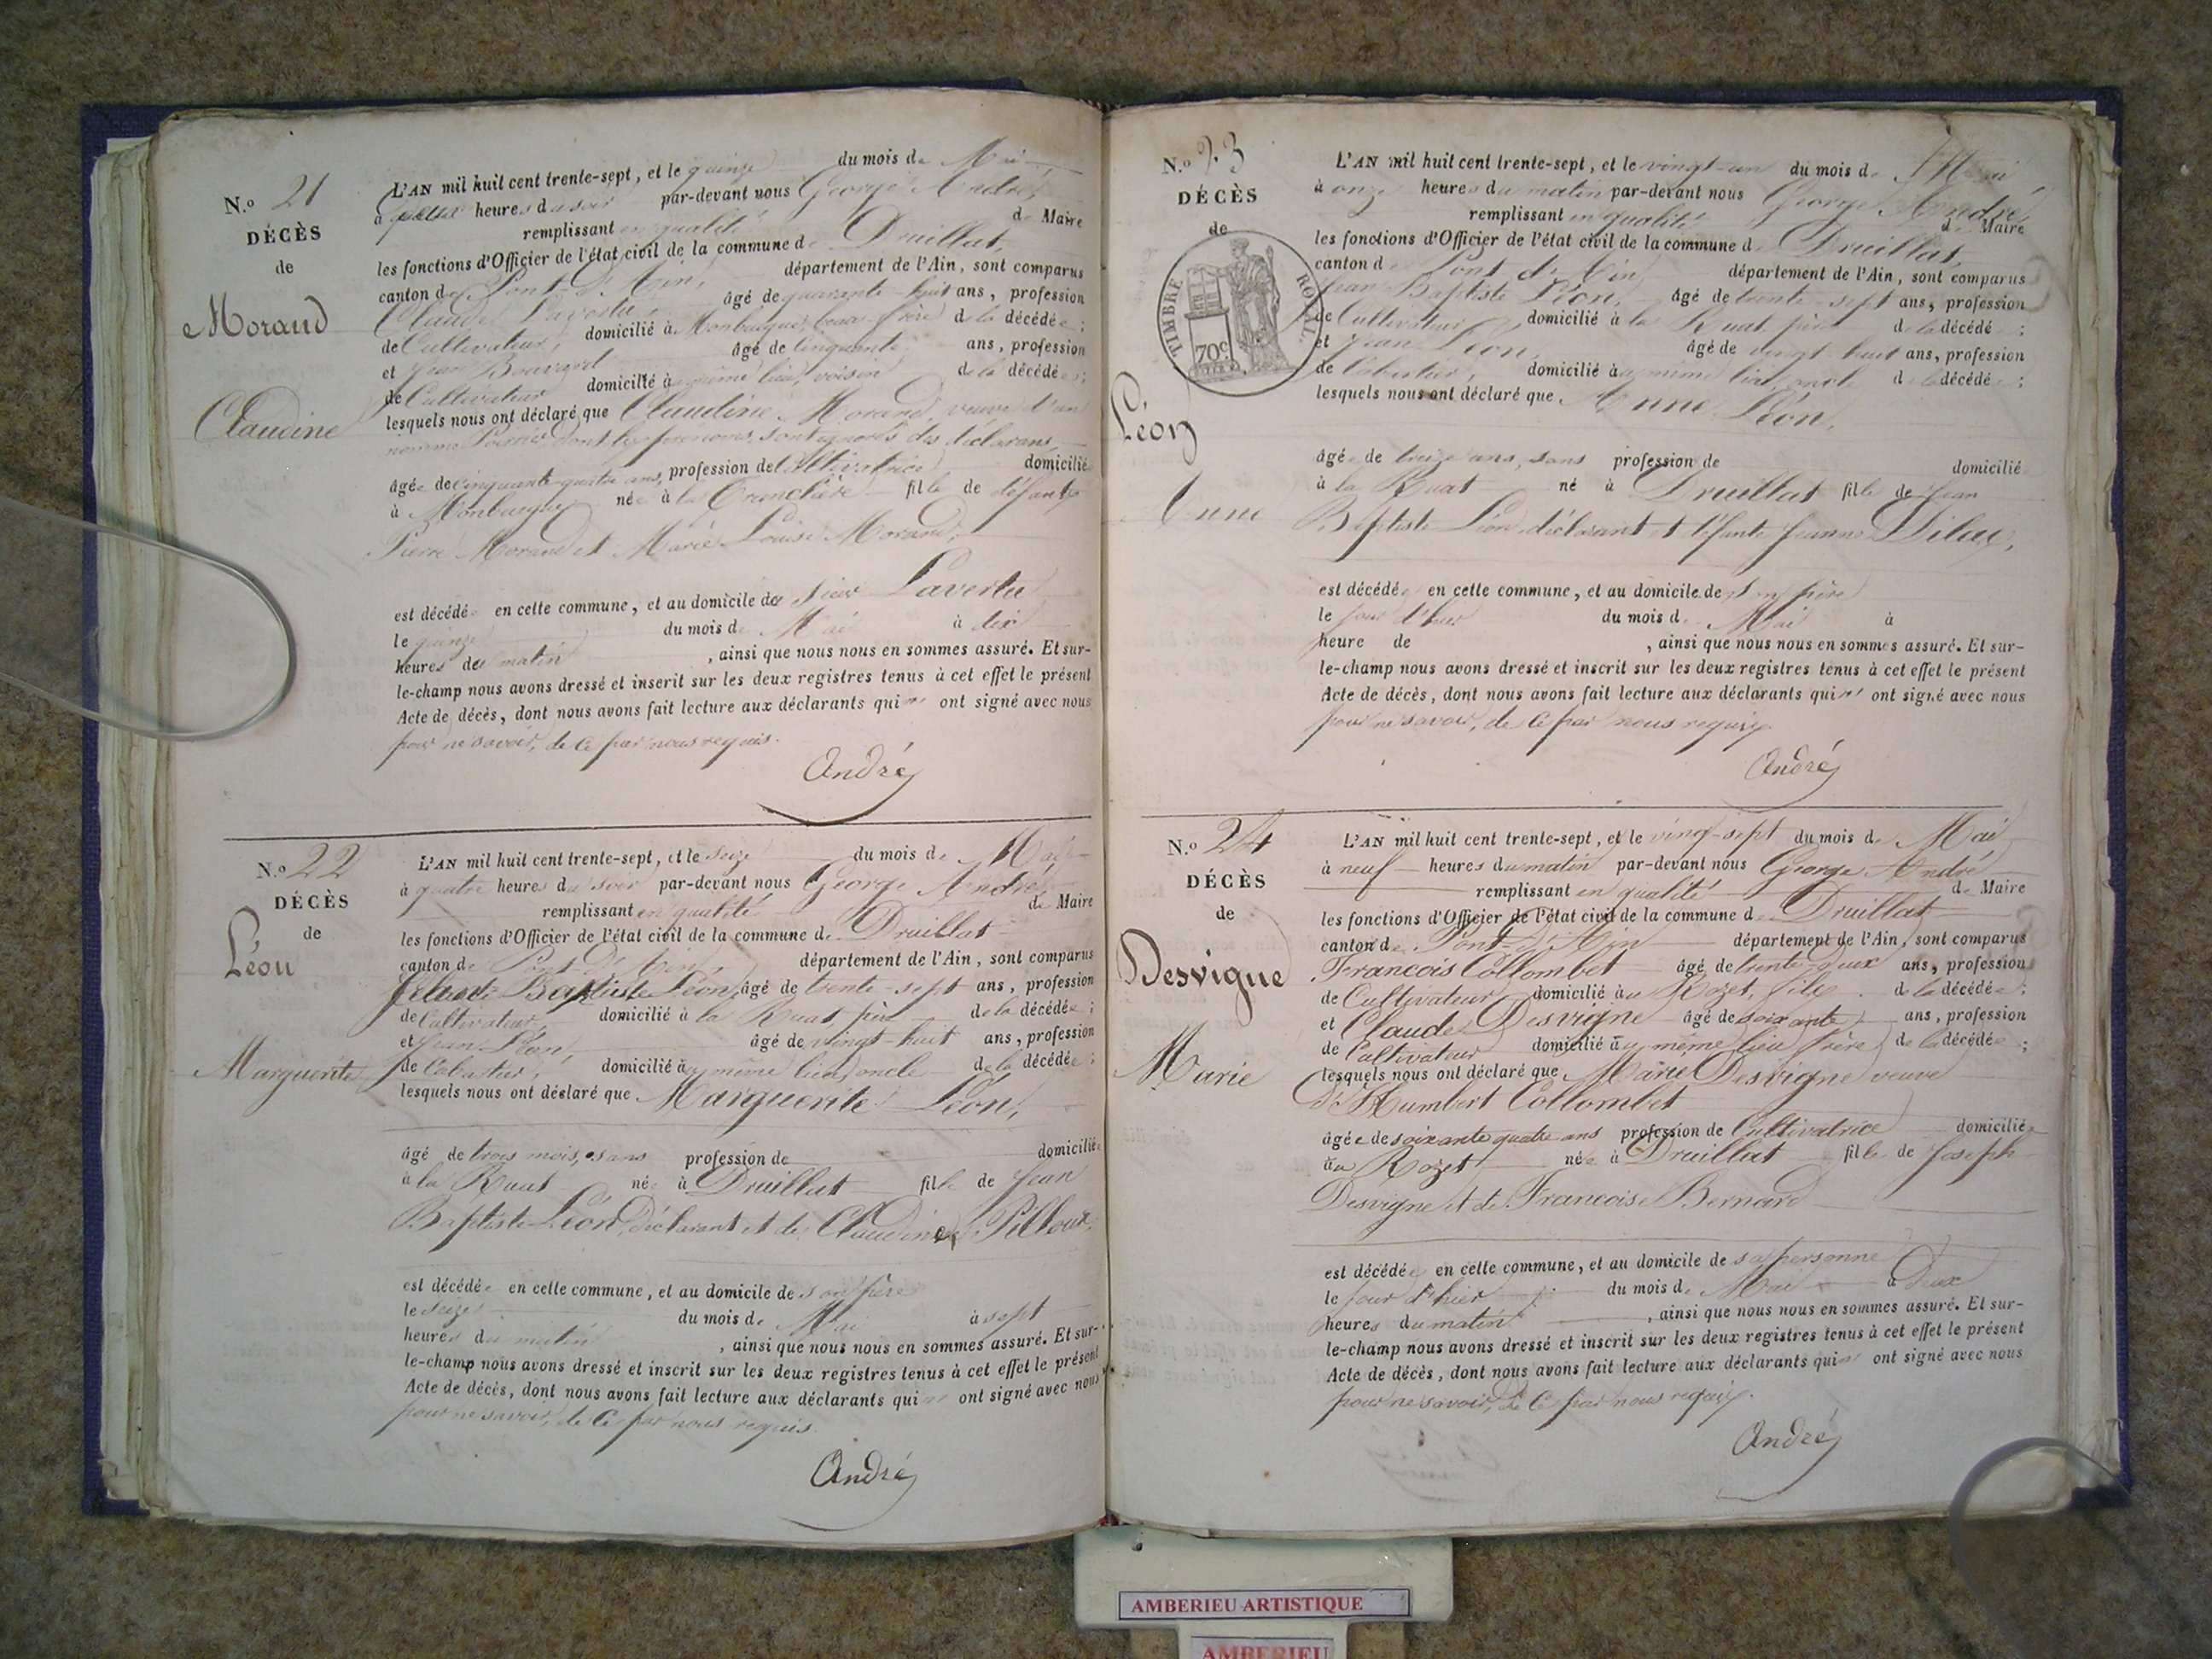 N.o 21
DÉCÈS
de
Morand
Claudine
L'AN mil huit cent trente-sept, et le quinze du mois de Mai
à heures du soir par-devant nous George André,
remplissant en qualité de Maire
les fonctions d'Officier de l'état civil de la commune de Druillat,
canton de Pont-d'Ain, département de l'Ain, sont comparus
Claude Lavertu, âgé de quarante-huit ans, profession
de Cultivateur, domicilié à beau-frère de la décédée;
et Jean Bouvard âgé de cinquante ans, profession
de Cultivateur domicilié au même lieu, voisin de la décédée;
lesquels nous ont déclaré que Claudine Morand, veuve d'un
nommé dont les prénoms sont ignorés des déclarans,
âgée de cinquante-quatre ans, profession de Cultivatrice domiciliée
à née à la Tranclière fille de défunts
Pierre Morand et Marie Louise Morand,
est décédée en cette commune, et au domicile de sieur Lavertu
le quinze du mois de Mai à dix
heures du matin, ainsi que nous nous en sommes assuré. Et sur-
le-champ nous avons dressé et inscrit sur les deux registres tenus à cet effet le présent
Acte de décès, dont nous avons fait lecture aux déclarants qui n' ont signé avec nous
pour ne savoir, de ce par nous requis.
André
N.o 22
DÉCÈS
de
Léon
Marguerite
L'AN mil huit cent trente-sept, et le seize du mois de Mai
à quatre heures du soir par-devant nous George André
remplissant en qualité de Maire
les fonctions d'Officier de l'état civil de la commune de Druillat
canton de Pont-d'Ain, département de l'Ain, sont comparus
Jean Baptiste Léon, âgé de trente-sept ans, profession
de Cultivateur, domicilié à la Ruat, père de la décédée;
et Jean Léon, âgé de vingt-huit ans, profession
de domicilié au même lieu, oncle de la décédée;
lesquels nous ont déclaré que Marguerite Léon,
âgé de trois mois, sans profession de domiciliée
à la Ruat née à Druillat fille de Jean
Baptiste Léon, déclarant et de Claudine Pilloux,
est décédée en cette commune, et au domicile de son père
le seize du mois de Mai à sept
heures du matin, ainsi que nous nous en sommes assuré. Et sur-
le-champ nous avons dressé et inscrit sur les deux registres tenus à cet effet le présent
Acte de décès, dont nous avons fait lecture aux déclarants qui n' ont signé avec nous
pour ne savoir, de ce par nous requis.
André
N.o 23
DÉCÈS
de
TIMBRE ROYAL
70c
Léon
Anne
L'AN mil huit cent trente-sept, et le vingt-un du mois de Mai
à onze heures du matin par-devant nous George André,
remplissant en qualité de Maire
les fonctions d'Officier de l'état civil de la commune de Druillat,
canton de Pont d'Ain département de l'Ain, sont comparus
Jean Baptiste Léon, âgé de trente-sept ans, profession
de Cultivateur domicilié à la Ruat, père de la décédé;
et Jean Léon, âgé de vingt huit ans, profession
de domicilié au même lieu, oncle de la décédé;
lesquels nous ont déclaré que Anne Léon,
âgée de treize ans, sans profession de domicilié
à la Ruat né à Druillat fille de Jean
Baptiste Léon déclarant et défunte Jeanne
est décédée en cette commune, et au domicile de son père
le jour d'hier du mois de Mai à
heure de , ainsi que nous nous en sommes assuré. Et sur-
le-champ nous avons dressé et inscrit sur les deux registres tenus à cet effet le présent
Acte de décès, dont nous avons fait lecture aux déclarants qui n' ont signé avec nous
pour ne savoir, de ce par nous requis
André
N.o 24
DÉCÈS
de
Desvigne
Marie
L'AN mil huit cent trente-sept, et le vingt-sept du mois de Mai
à neuf heures du matin par-devant nous George André
remplissant en qualité de Maire
les fonctions d'Officier de l'état civil de la commune de Druillat
canton de Pont-d'Ain département de l'Ain, sont comparus
Francois Collombet âgé de trente-deux ans, profession
de Cultivateur domicilié au Rozet, fils de la décédée;
et Claude Desvigne âgé de soixante ans, profession
de Cultivateur domicilié au même lieu frère de la décédée;
lesquels nous ont déclaré que Marie Desvigne veuve
d'Humbert Collombet
âgée de soixante quatre ans profession de Cultivatrice domiciliée
au Rozet née à Druillat fille de Joseph
Desvigne et de Francoise Bernard
est décédée en cette commune, et au domicile de sa personne
le jour d'hier du mois de Mai à deux
heures du matin, ainsi que nous nous en sommes assuré. Et sur-
le-champ nous avons dressé et inscrit sur les deux registres tenus à cet effet le présent
Acte de décès, dont nous avons fait lecture aux déclarants qui n' ont signé avec nous
pour ne savoir, de ce par nous requis.
André
AMBERIEU ARTISTIQUE
AMBERIEU